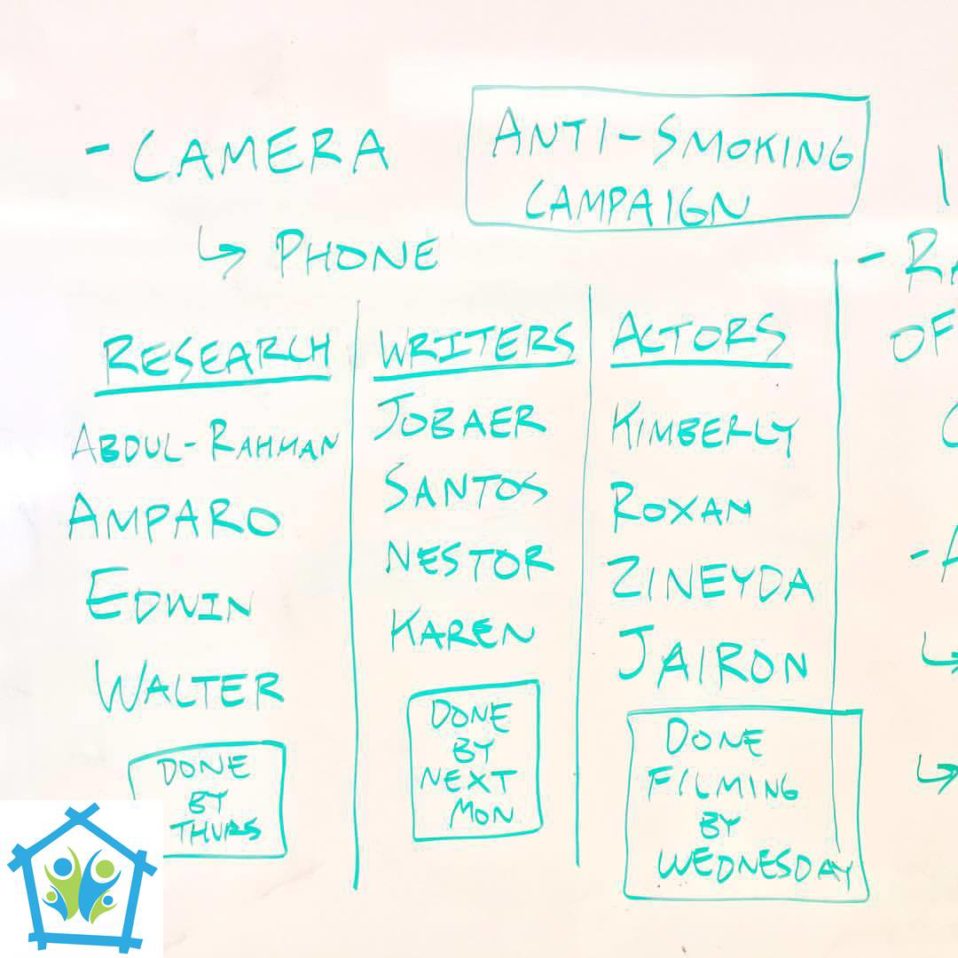 - CAMERA
↳ PHONE
ANTI-SMOKING
CAMPAIGN
RESEARCH
ABDUL-RAHMAN
AMPARO
EDWIN
WALTER
DONE
BY
THURS
WRITERS
JOBAER
SANTOS
NESTOR
KAREN
DONE
BY
NEXT
MON
ACTORS
KIMBERLY
ROXAN
ZINEYDA
JAIRON
DONE
FILMING
BY
WEDNESDAY
OF